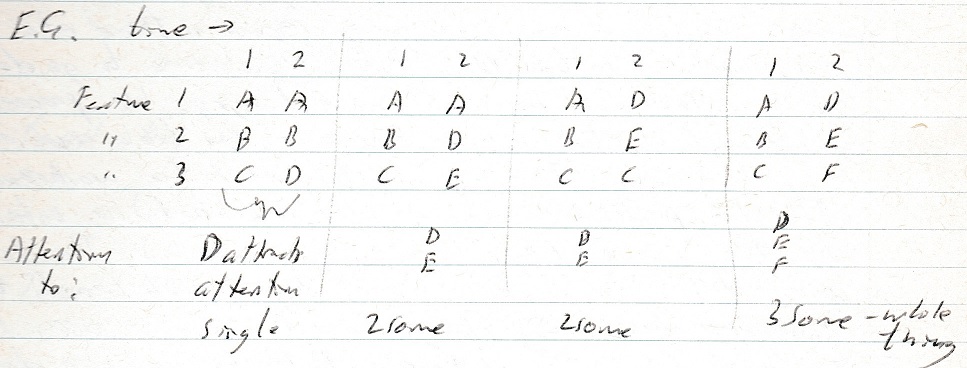 E.G. time →
1 2 1 2 1 2 1 2
Feature 1 A A A A A D A D
" 2 B B B D B E B E
" 3 C D C E C C C F
D
Attention D attracts D D E
to: attention E E F
single 2some 2some 3some - whole
thing